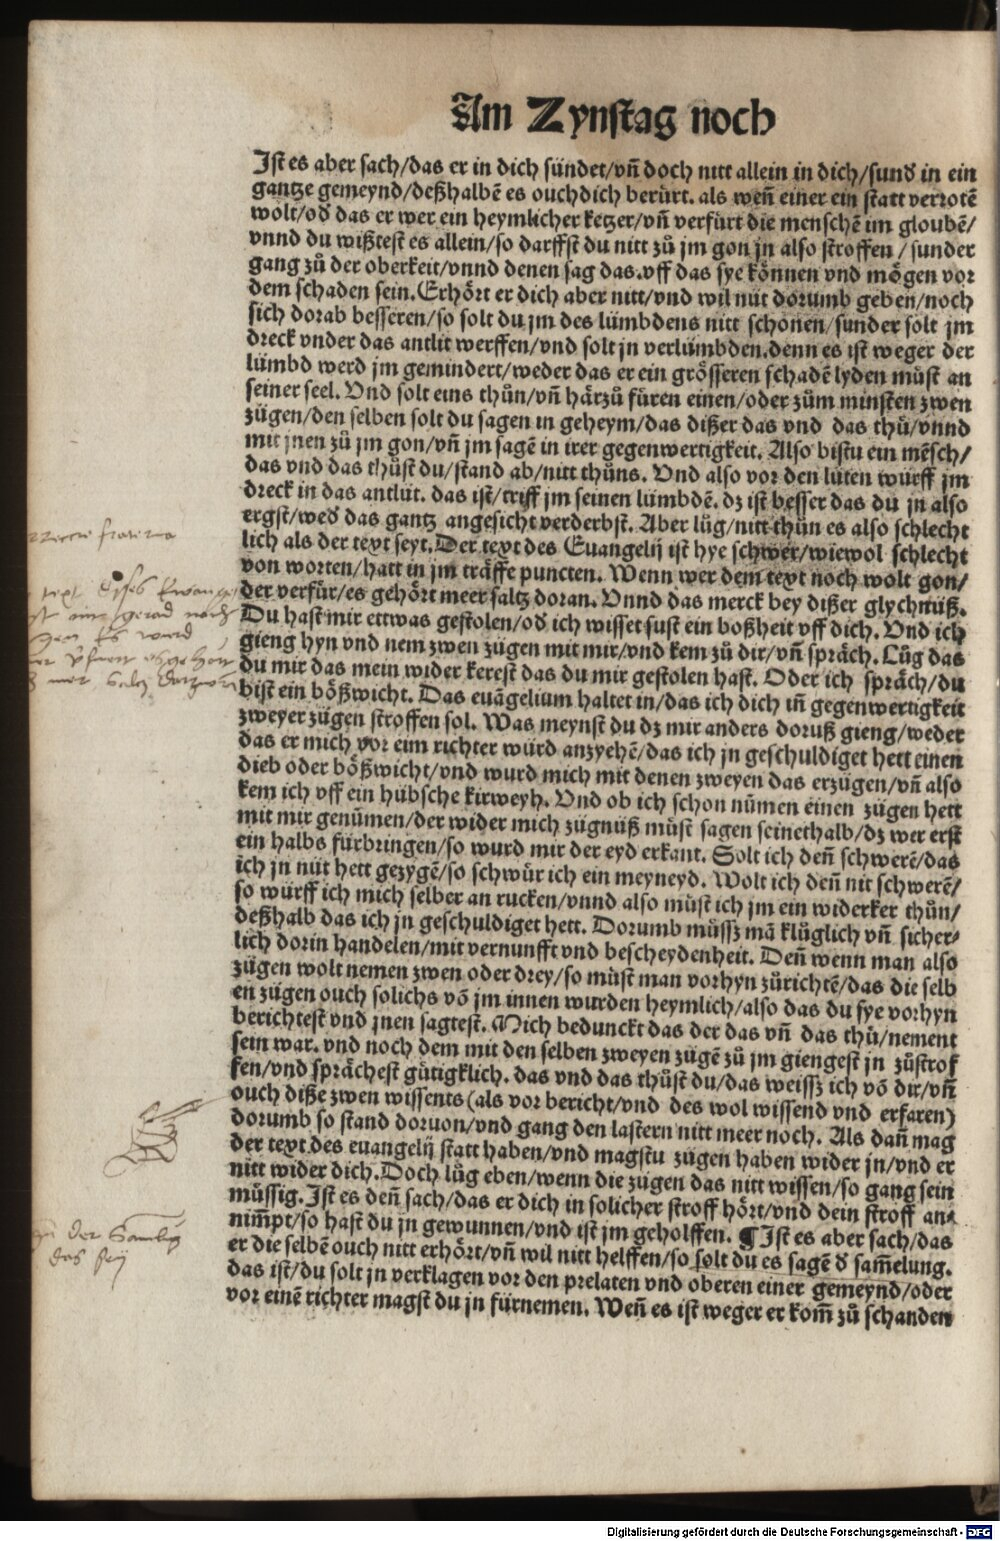 Am Zynstag noch
Ist es aber sach/das er in dich sündet/vñ doch nitt allein in dich/sund̕ in ein
gantze gemeynd/deßhalbē es ouch dich berürt. als weñ einer ein statt verrotē
wolt/od̕ das er wer ein heymlicher ketzer/vñ verfürt die menschē im gloubē/
vnnd du wißtest es allein/so darffst du nitt zů jm gon jn also stroffen/sunder
gang zů der oberkeit/vnnd denen sag das. vff das sye können vnd mögen vor
dem schaden sein. Erhört er dich aber nitt/vnd wil nüt dorumb geben/noch
sich dorab besseren/so solt du jm des lümbdens nitt schonen/sunder solt jm
dreck vnder das antlit werffen/vnd solt jn verlümbden. denn es ist weger der
lümbd werd jm gemindert/weder das er ein grösseren schadē lyden müst an
seiner seel. Vnd solt eins thůn/vñ härzů füren einen/oder zům minsten zwen
zügen/den selben solt du sagen in geheym/das dißer das vnd das thů/vnnd
mit jnen zů jm gon/vñ jm sagē in irer gegenwertigkeit. Also bistu ein mēsch/
das vnd das thůst du/stand ab/nitt thůns. Vnd also vor den lüten würff jm
dreck in das antlüt. das ist/triff jm seinen lümbdē. dz ist besser das du jn also
ergst/wed̕ das gantz angesicht verderbst. Aber lůg/nitt thůn es also schlecht
lich als der text seyt. Der text des Euangelij ist hye schwer/wiewol schlecht
von worten/hatt in jm träffe puncten. Wenn wer dem text noch wolt gon/
der verfür/es gehört meer saltz doran. Vnnd das merck bey dißer glychnüß.
Du hast mir ettwas gestolen/od̕ ich wisset sust ein boßheit vff dich. Vnd ich
gieng hyn vnd nem zwen zügen mit mir/vnd kem zů dir/vñ spräch. Lůg das
du mir das mein wider kerest das du mir gestolen hast. Oder ich spräch/du
bist ein bößwicht. Das euāgelium haltet in/das ich dich iñ gegenwertigkeit
zweyer zügen stroffen sol. Was meynst du dz mir anders doruß gieng/weder
das er mich vor eim richter würd anzyehē/das ich jn geschuldiget hett einen
dieb oder bößwicht/vnd wurd mich mit denen zweyen das erzügen/vñ also
kem ich vff ein hübsche kirweyh. Vnd ob ich schon nümen einen zügen hett
mit mir genūmen/der wider mich zügnüß müst sagen seinethalb/dz wer erst
ein halbs fürbringen/so wurd mir der eyd erkant. Solt ich deñ schwerē/das
ich jn nüt hett gezygē/so schwür ich ein meyneyd. Wolt ich deñ nit schwerē/
so würff ich mich selber an rucken/vnnd also müst ich jm ein widerker thůn/
deßhalb das ich jn geschuldiget hett. Dorumb müssz mā klüglich vñ sicher⸗
lich dorin handelen/mit vernunfft vnd bescheydenheit. Deñ wenn man also
zügen wolt nemen zwen oder drey/so müst man vorhyn zůrichtē/das die selb
en zügen ouch solichs vō jm innen wurden heymlich/also das du sye vorhyn
berichtest vnd jnen sagtest. Mich bedunckt das der das vñ das thů/nement
sein war. vnd noch dem mit den selben zweyen zügē zů jm giengest jn zůstrof
fen/vnd sprächest gütigklich. das vnd das thůst du/das weissz ich vō dir/vñ
ouch diße zwen wissents (als vor bericht/vnd des wol wissend vnd erfaren)
dorumb so stand doruon/vnd gang den lastern nitt meer noch. Als dañ mag
der text des euangelij statt haben/vnd magstu zügen haben wider jn/vnd er
nitt wider dich. Doch lůg eben/wenn die zügen das nitt wissen/so gang sein
müssig. Ist es deñ sach/das er dich in solicher stroff hört/vnd dein stroff an⸗
nim̄pt/so hast du jn gewunnen/vnd ist jm geholffen. ¶ Ist es aber sach/das
er die selbē ouch nitt erhört/vñ wil nitt helffen/so solt du es sagē d̕ sam̄elung.
das ist/du solt jn verklagen vor den prelaten vnd oberen einer gemeynd/oder
vor einē richter magst du jn fürnemen. Weñ es ist weger er kom̄ zů schanden
text dises Ewange
gerad nach
der Samlūg
das sey
Digitalisierung gefördert durch die Deutsche Forschungsgemeinschaft - DFG